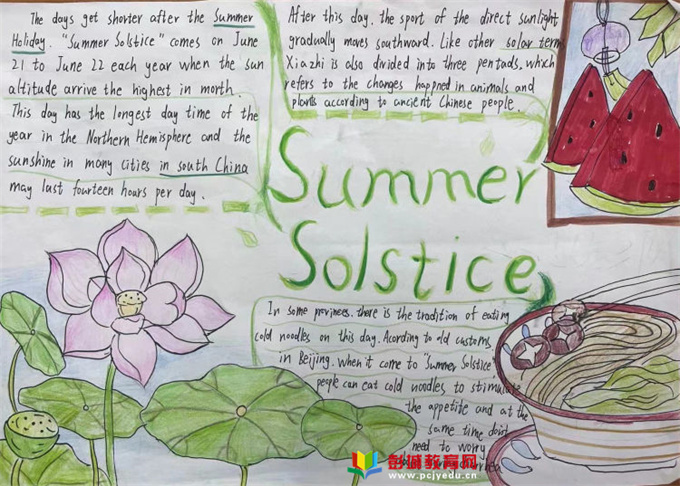 The days get shorter after the Summer
Holiday. "Summer Solstice" comes on June
21 to June 22 each year when the sun
altitude arrive the highest in morth.
This day has the longest day time of the
year in the Northern Hemisphere and the
sunshine in many cities in south China
may last fourteen hours per day.
After this day, the sport of the direct sunlight
gradually moves southward. Like other solar term
Xiazhi is also divided into three pentads, which
refers to the changes happned in animals and
plants according to ancient Chinese people.
Summer
Solstice
In some provinces, there is the tradition of eating
cold noodles on this day. Acording to old customs,
in Beijing. When it come to "Summer Solstice"
people can eat cold noodles to stimulate
the appetite and at the
same time don't
need to worry
彭城教育网
www.pcjyedu.cn